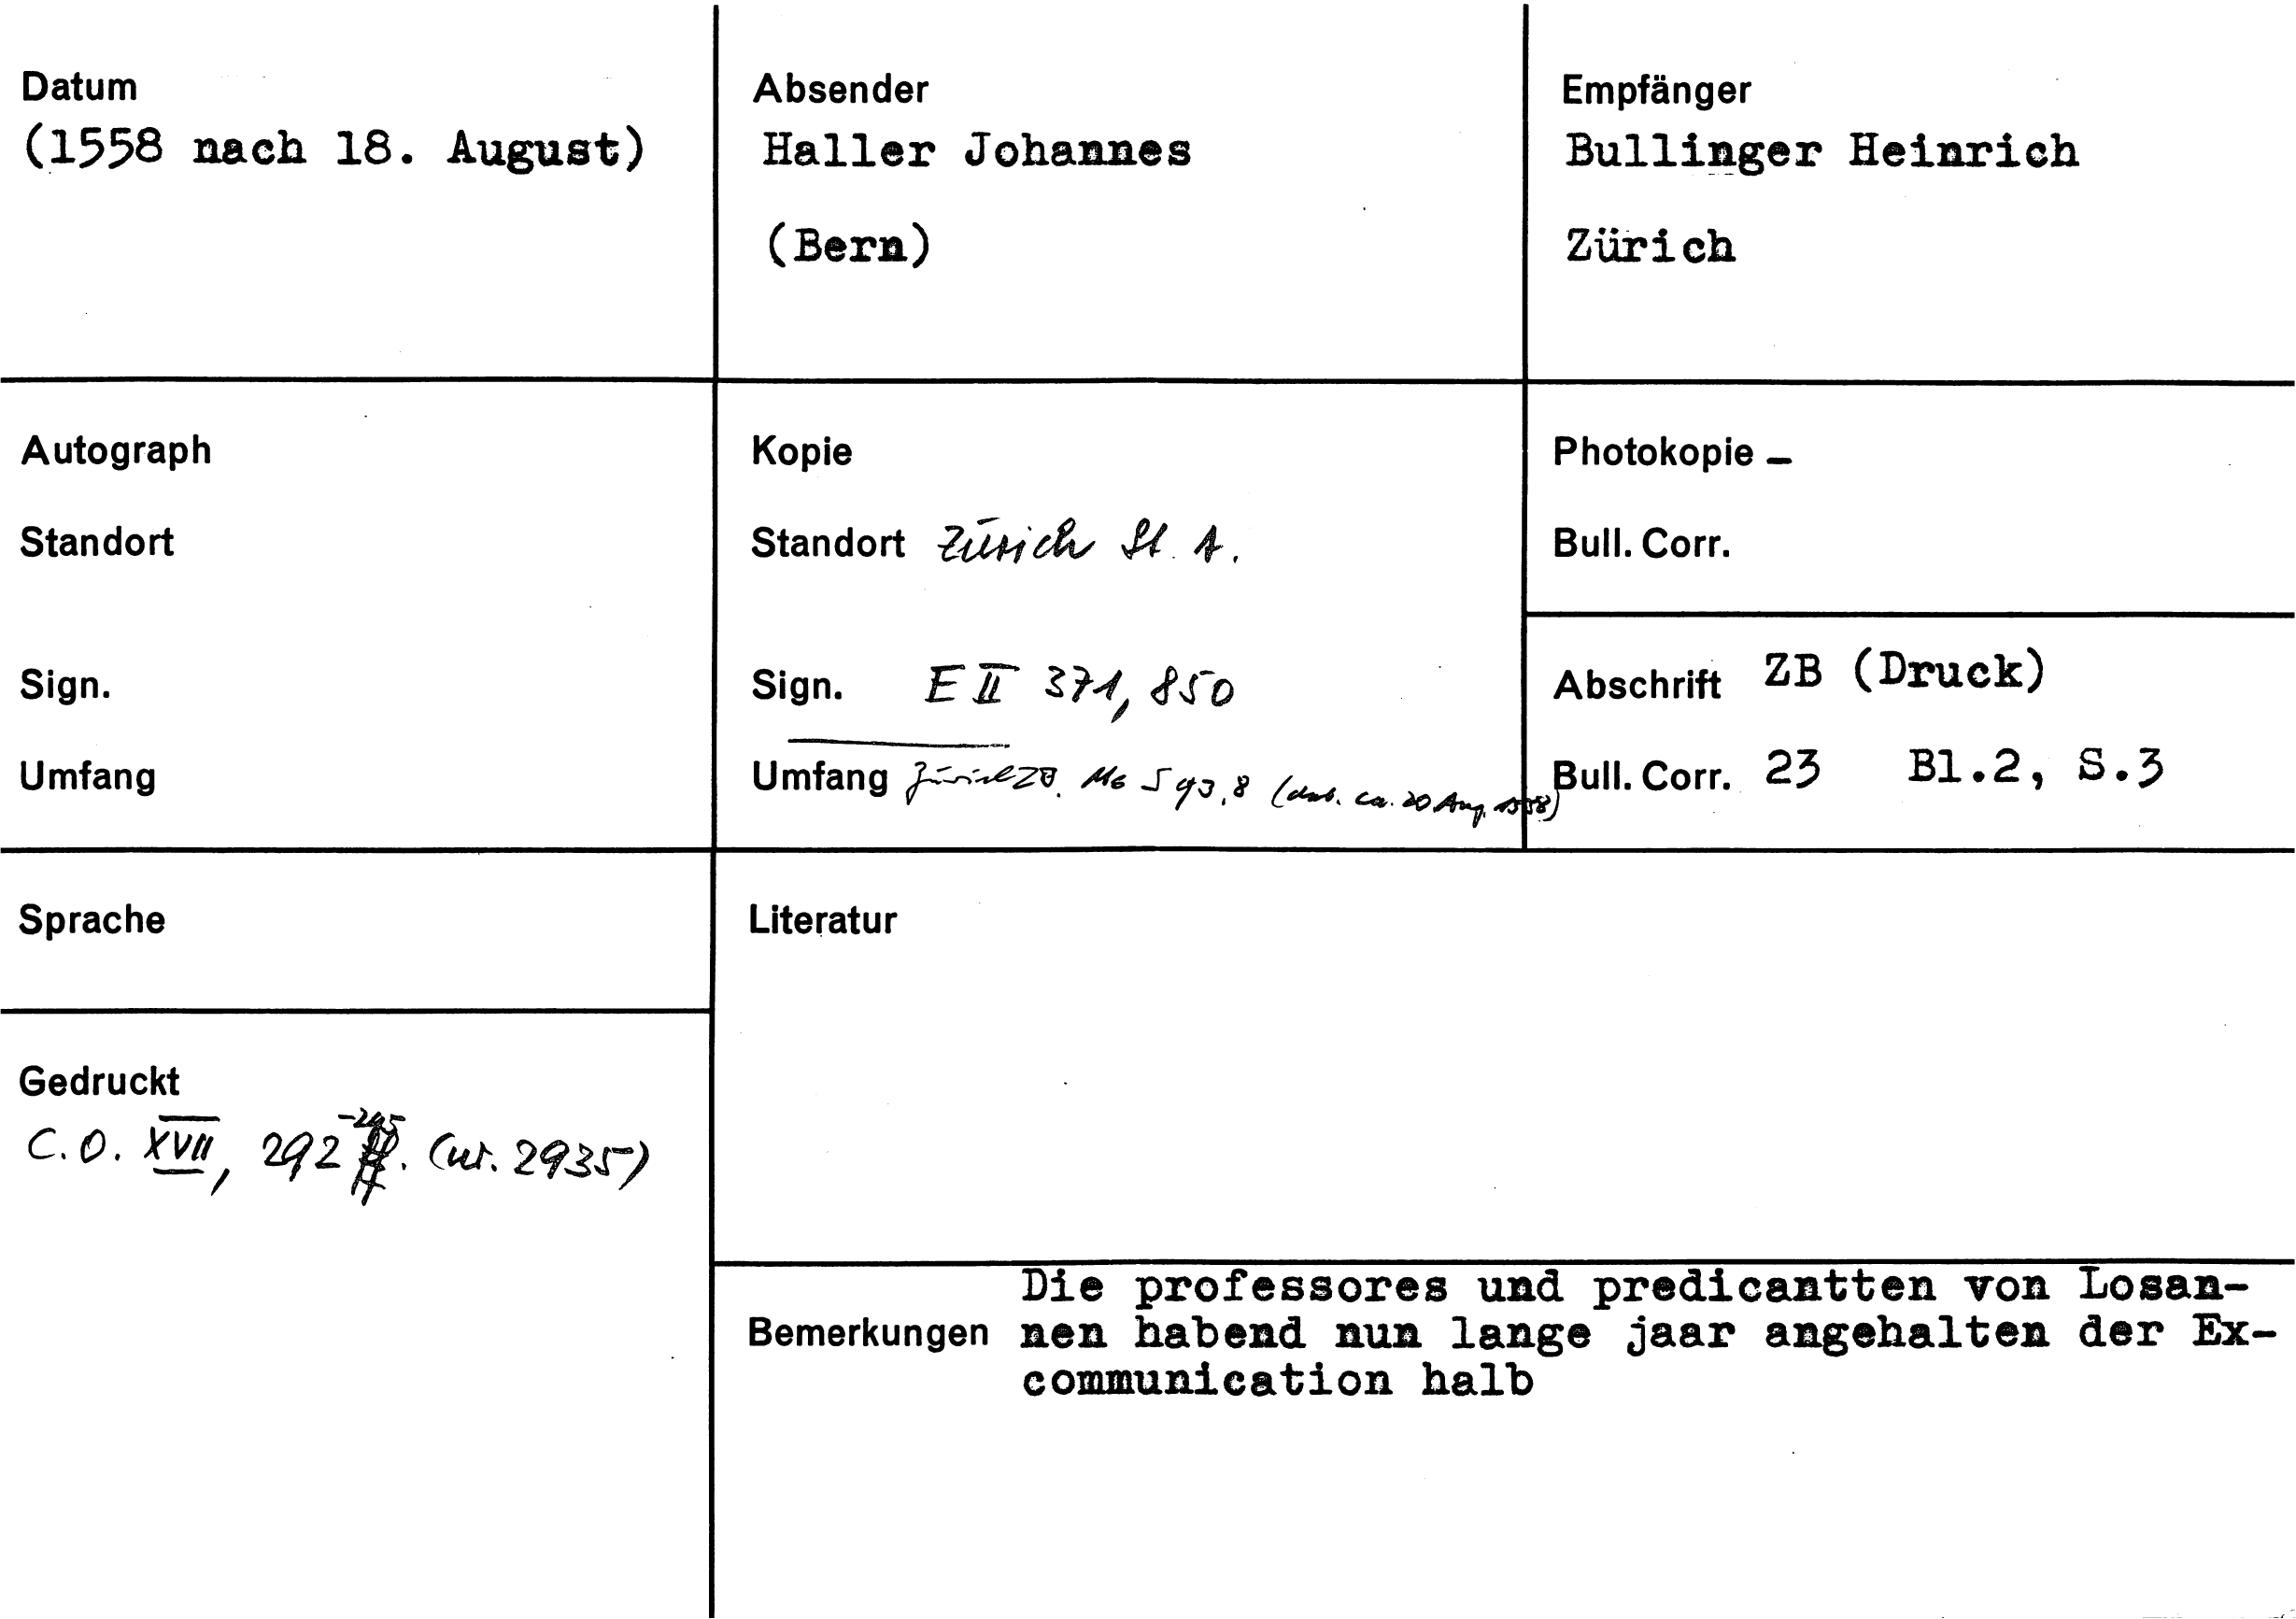 Datum
(1558 nach 18. August)
Absender
Haller Johannes
(Bern)
Empfänger
Bullinger Heinrich
Zürich
Autograph
Standort
Sign.
Umfang
Kopie
Standort Zürich St. A.
Sign. E II 371, 850
Umfang Zürich ZB. Ms S 93, 8 (dat. ca. 20 Aug. 1558)
Photokopie –
Bull. Corr.
Abschrift ZB (Druck)
Bull. Corr. 23 Bl.2, S.3
Sprache
Literatur
Gedruckt
C.O. XVII, 292-295. (nr. 2935)
Bemerkungen
Die professores und predicantten von Losan-
nen habend nun lange jaar angehalten der Ex-
communication halb